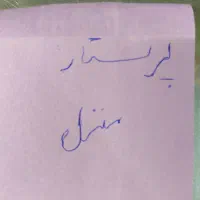 پرستار
منزل